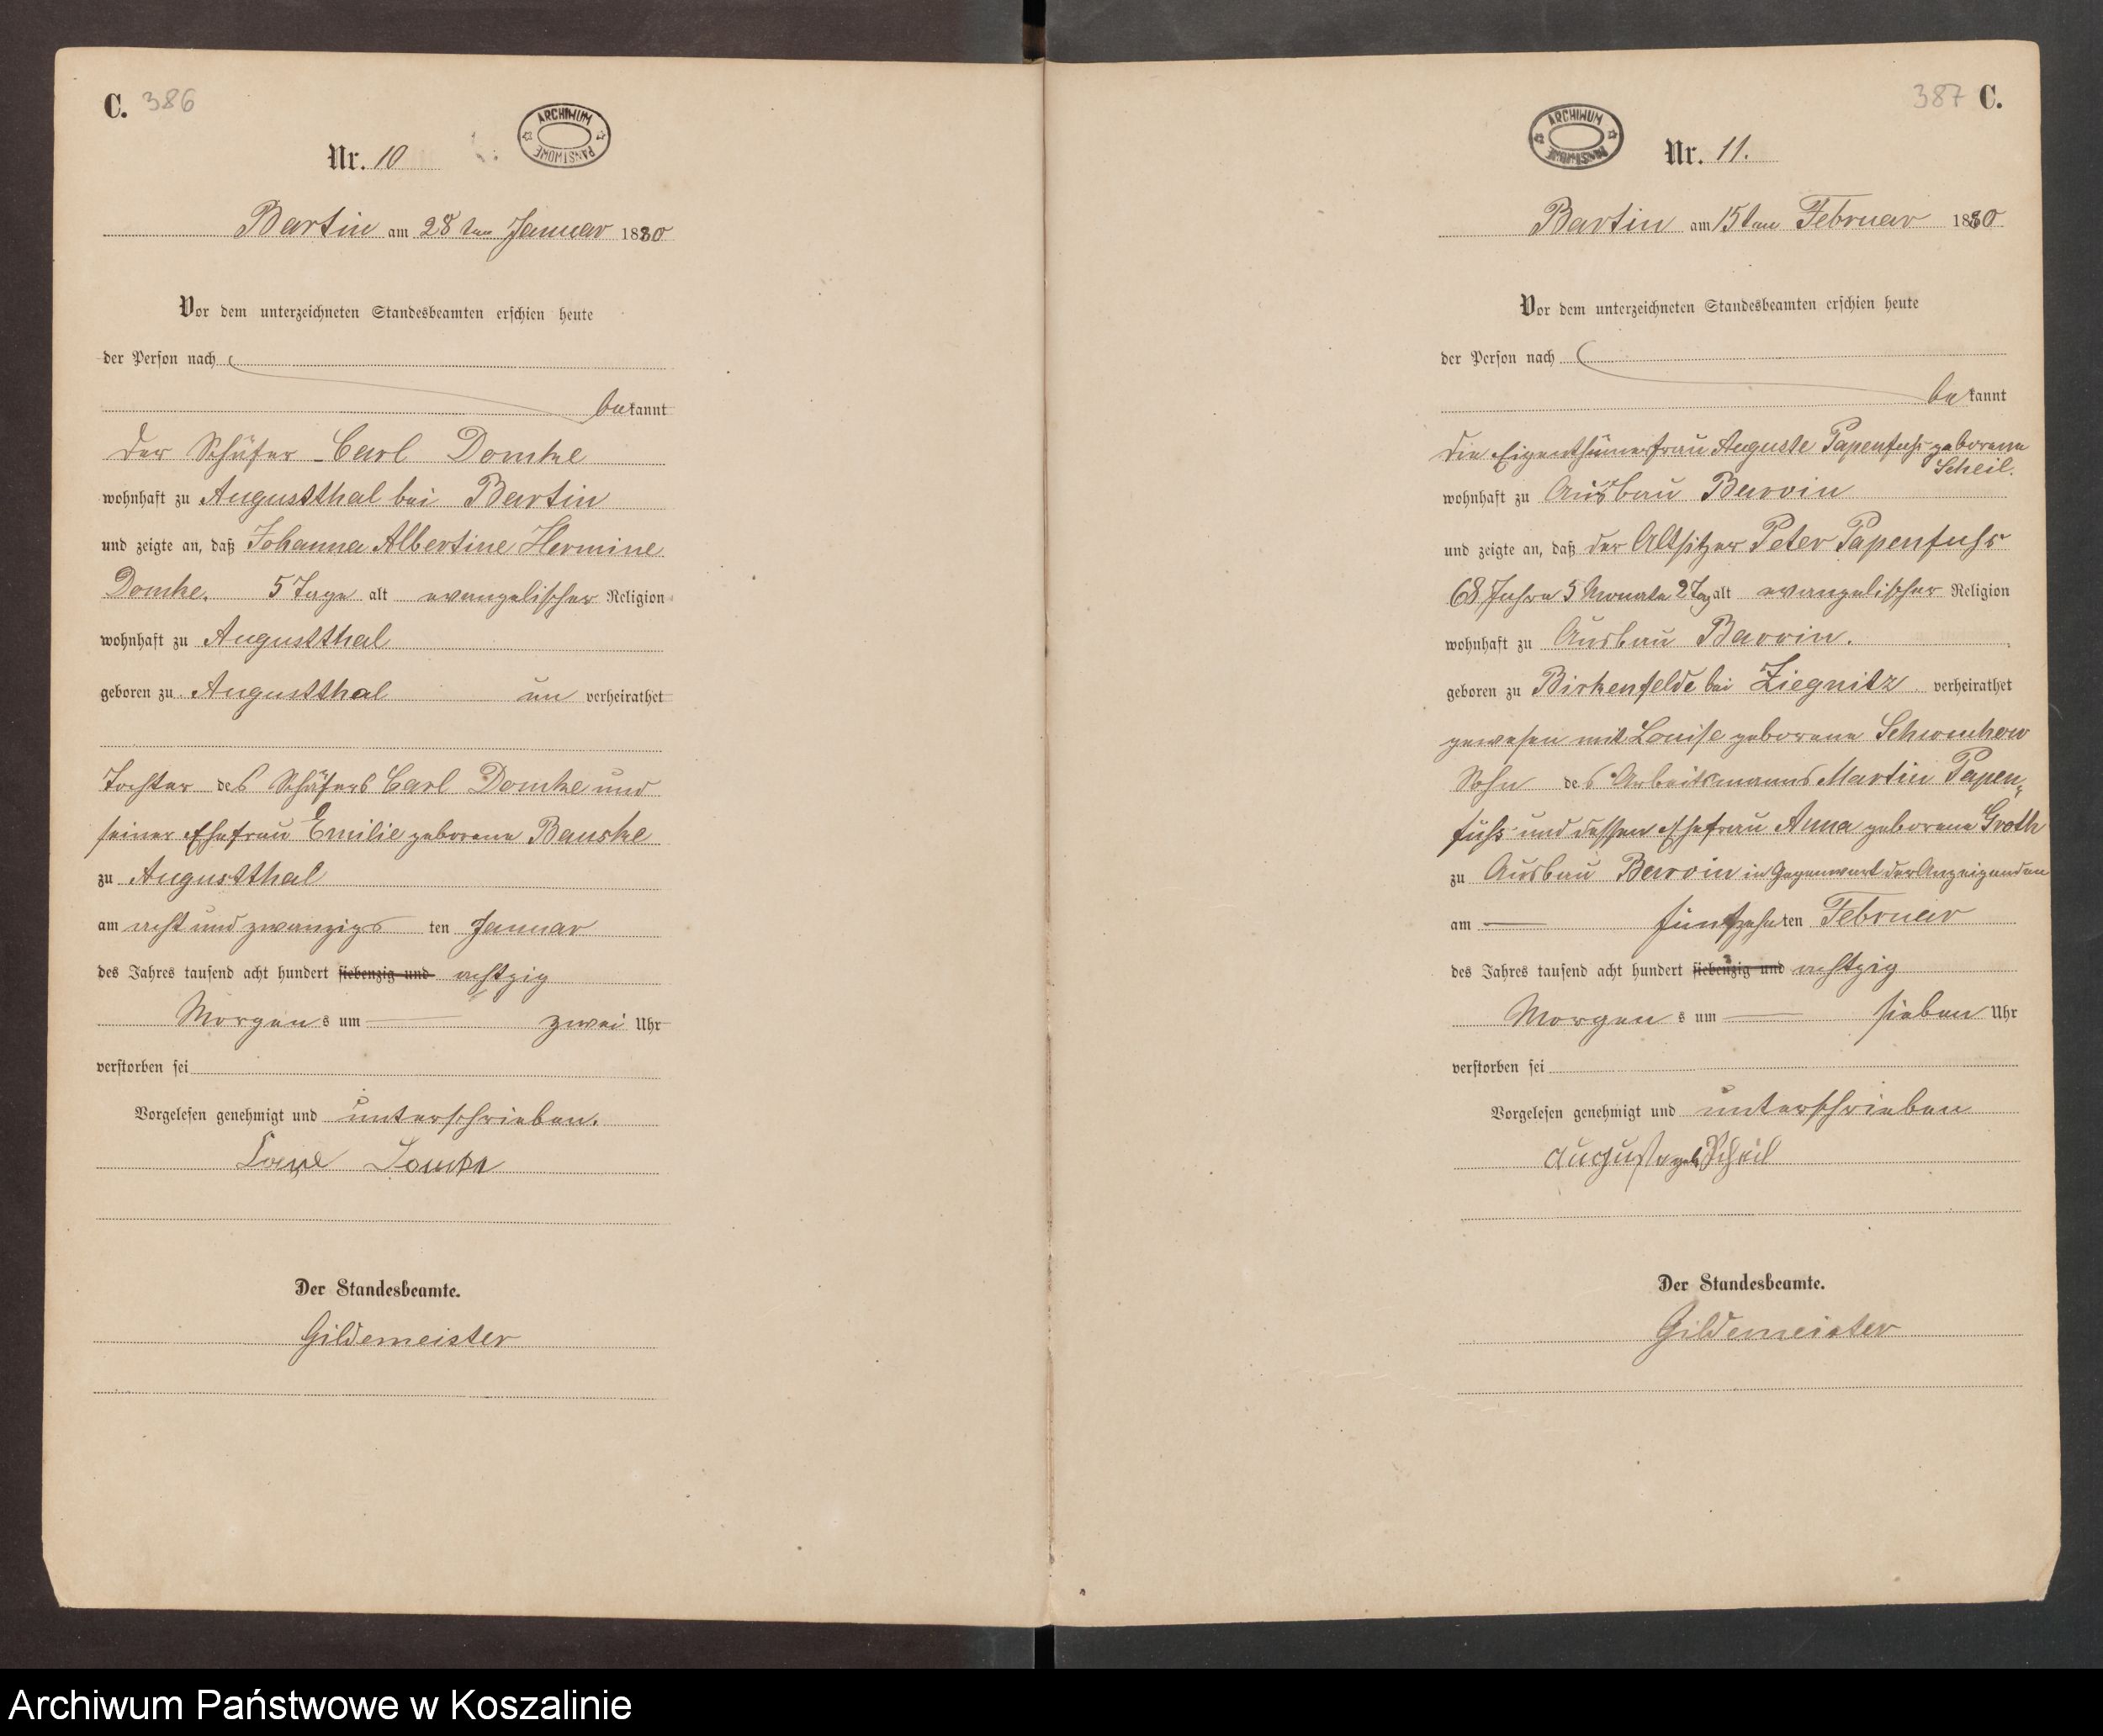 C. 386
ARCHIWUM PAŃSTWOWE
Nr. 10
Bartin am 28ten Januar 1880
Vor dem unterzeichneten Standesbeamten erschien heute
der Person nach
bekannt
der Schäfer Carl Domke
wohnhaft zu Augustthal bei Bartin
und zeigte an, daß Johanna Albertine Hermine
Domke, 5 Tage alt evangelischer Religion
wohnhaft zu Augustthal
geboren zu Augustthal un verheirathet
Tochter des Schäfers Carl Domke und
seiner Ehefrau Emilie geborene Banske
zu Augustthal
am acht und zwanzigs ten Januar
des Jahres tausend acht hundert siebenzig und achtzig
Morgens um zwei Uhr
verstorben sei
Vorgelesen genehmigt und unterschrieben.
Domke
Der Standesbeamte.
Gildemeister
387 C.
ARCHIWUM PAŃSTWOWE
Nr. 11.
Bartin am 15ten Februar 1880
Vor dem unterzeichneten Standesbeamten erschien heute
der Person nach
bekannt
die Eigenthümerfrau Auguste Papenfuhs geborene
Scheil.
wohnhaft zu Ausbau Barvin
und zeigte an, daß der Altsitzer Peter Papenfuhs
68 Jahre 5 Monate 2 Tag alt evangelischer Religion
wohnhaft zu Ausbau Barvin.
geboren zu Birkenfelde bei Ziegnitz verheirathet
gewesen mit Louise geborene Schwuchow
Sohn des Arbeitsmanns Martin Papen-
fuhs und dessen Ehefrau Anna geborene Groth
zu Ausbau Barvin in Gegenwart der Anzeigenden
am fünfzehnten Februar
des Jahres tausend acht hundert siebenzig und achtzig
Morgens um sieben Uhr
verstorben sei
Vorgelesen genehmigt und unterschrieben
August geb Scheil
Der Standesbeamte.
Gildemeister
Archiwum Państwowe w Koszalinie